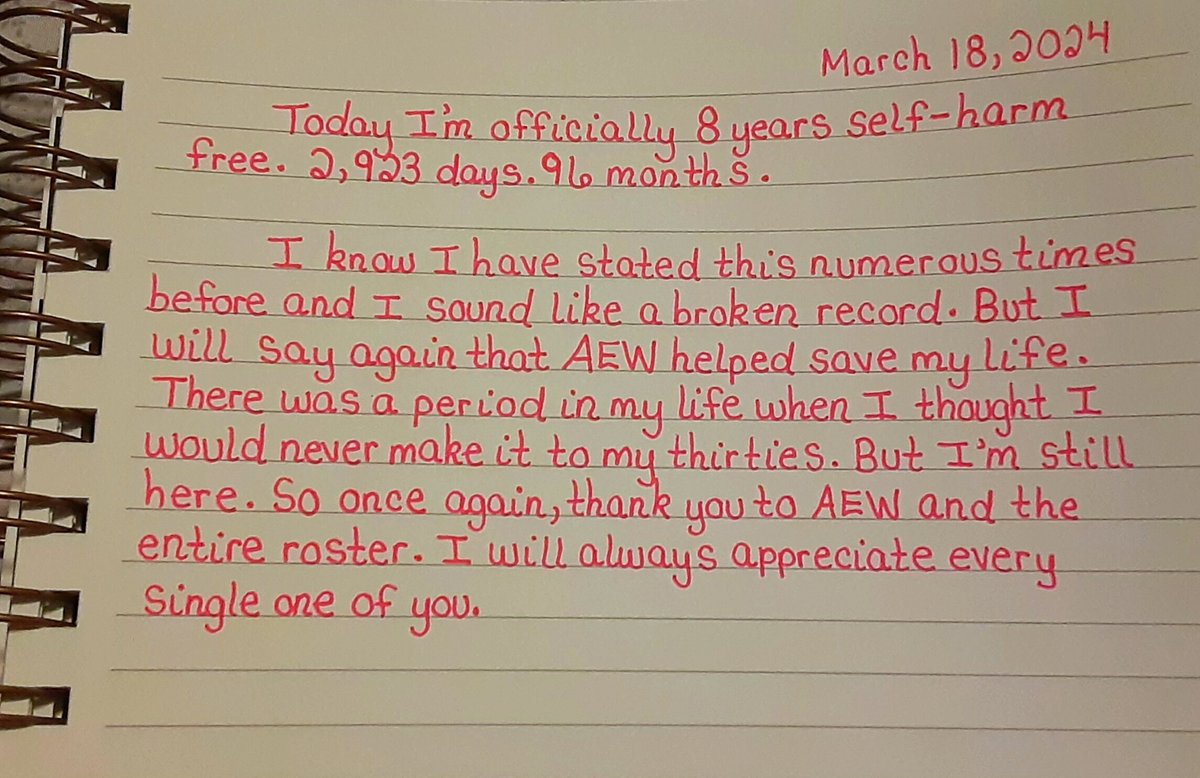 March 18, 2024
Today I'm officially 8 years self-harm
free. 2,923 days. 96 months.
I know I have stated this numerous times
before and I sound like a broken record. But I
will say again that AEW helped save my life.
There was a period in my life when I thought I
would never make it to my thirties. But I'm still
here. So once again, thank you to AEW and the
entire roster. I will always appreciate every
single one of you.